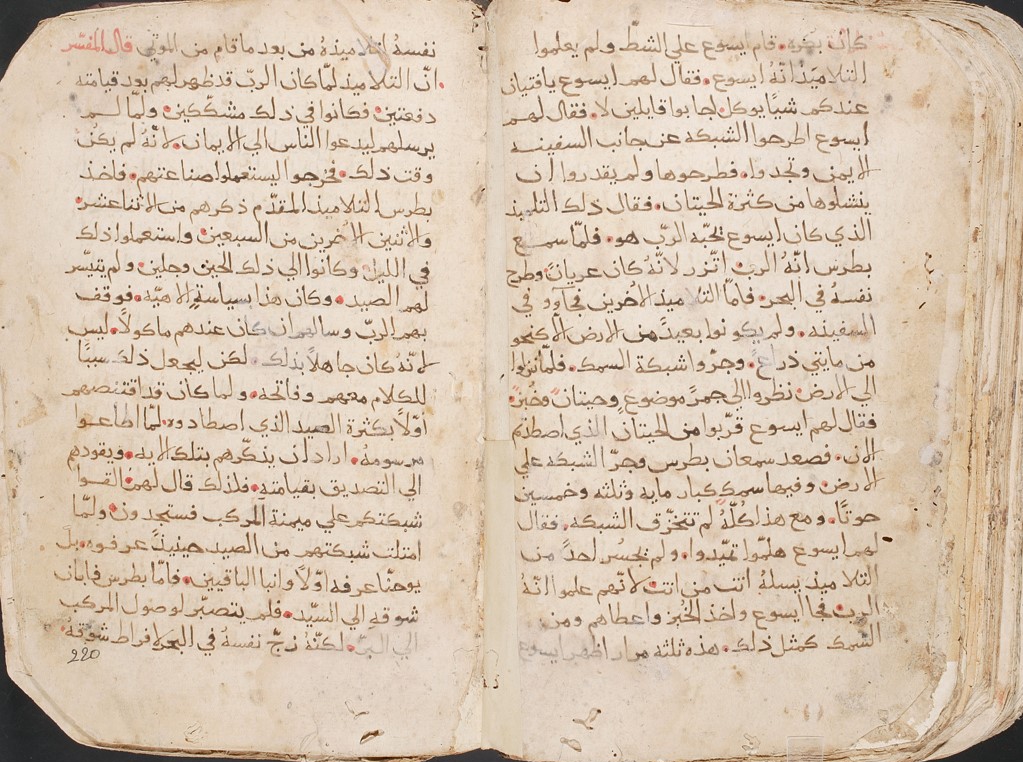 كانت بكره. قام ايسوع علي الشط ولم يعلموا
التلاميذ انه ايسوع. فقال لهم ايسوع يافتيان
عندكم شيًا يوكل. اجابوا قايلين لا. فقال لهم
ايسوع اطرحوا الشبكة عن جانب السفينه
الايمن وتجدوا. فطرحوها ولم يقدروا ان
ينشلوها من كثرة الحيتان. فقال ذلك التلميذ
الذي كان ايسوع يحبّه الربّ هو. فلمّا سمع
بطرس انّهُ الربّ اتّزر لانّهُ كان عريانً وطرح
نفسهُ في البحر. فامّا التلاميذ الاخرين فجآوو في
السفينه. ولم يكونوا بعيدً من الارض الا كنحو
من مايتي ذراعٍ. وجرّوا شبكة السمك. فلمّا نزلوا
الي الارض نظروا الي جمرً موضوعٍ وحيتانً وخُبزً.
فقال لهم ايسوع قرّبوا من الحيتان الذي اصطدتم
الان. فصعد سمعان بطرس وجرّ الشبكة علي
الارض. وفيها سمكٍ كبار مايه وثلثه وخمسين
حوتًا. ومع هذا كُلّهُ لم تتخرّق الشبكة. فقال
لهم ايسوع هلمّوا تغيّدوا. ولم يجسُر احدًا من
التلاميذ يسلهُ انت من انت لانّهم علموا انّهُ
الربّ فجا ايسوع واخذ الخُبز واعطاهم ومن
السمك كمثل ذلك. هذه ثلثه مرار اظهر ايسوع
نفسهُ لتلاميذهُ من بعد ما قام من الموتي قال المفسّر
انّ التلاميذ لمّا كان الربّ قد ظهر لهم بعد قيامته
دفعتين. فكانوا في ذلك مشكّكين. ولمّا لم
يرسلهم ليدعوا الناس الي الايمان. لانّهُ لم يكن
وقت ذلك. فخرجوا ليستعملوا صناعتهم. فاخذ
بطرس التلاميذ المقدّم ذكرهم من الاثنا عشر.
والاثنين الاخرين من السبعين. واستعملوا ذلك
في الليل. وكانوا الي ذلك الحين وجلين. ولم يتيسّر
لهم الصيد. وكان هذا بسياسةٍ الاهيّه. فوقف
بهم الربّ وسالهم ان كان عندهم ماكولاً. ليس
لانّه كان جاهلاً بذلك. لكن ليجعل ذلك سببًا
للكلام معهم وفاتحة. ولما كان قد اقتنصهم
اوّلاً بكثرة الصيد الذي اصطادوه. لمّا اطاعوا
مرسومهُ. اراد ان يذكّرهم بتلك الايه. ويقودهم
الي التصديق بقيامتهِ. فلذلك قال لهم القوا
شبكتكم علي ميمنة المركب فستجدون. ولمّا
امتلت شبكتهم من الصيد حينيذً عرفوه. بل
يوحنّا عرفه اوّلاً وانبا الباقيين. فامّا بطرس فابان
شوقهِ الي السيّد. فلم يتصبّر لوصول المركب
الي البرّ. لكنّهُ زجّ نفسهُ في البحر لافراط شوقهُ.
220